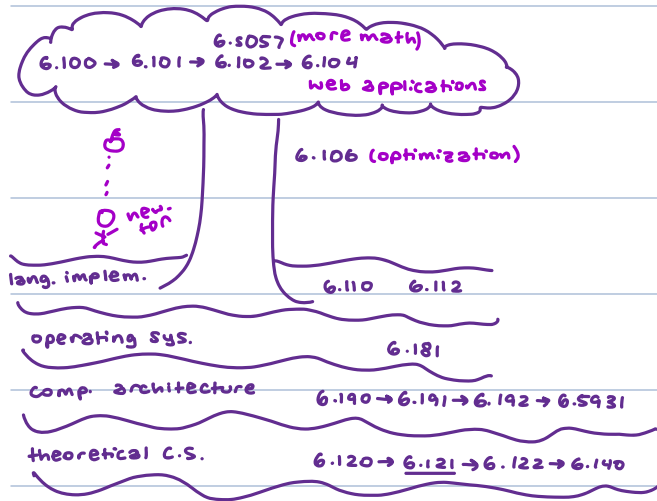 6.S057 (more math)
6.100 → 6.101 → 6.102 → 6.104
web applications
6.106 (optimization)
new-
ton
lang. implem.
6.110 6.112
operating sys.
6.181
comp. architecture
6.190 → 6.191 → 6.192 → 6.5931
theoretical C.S.
6.120 → 6.121 → 6.122 → 6.140